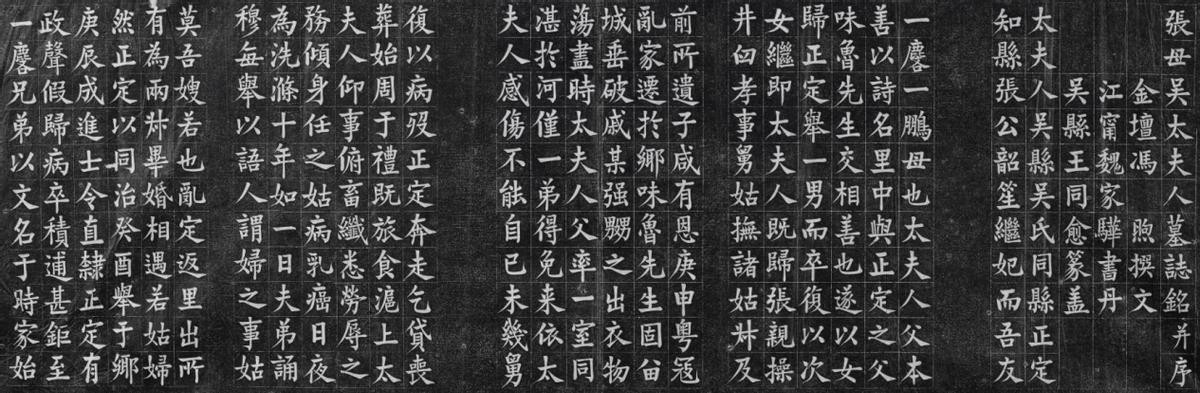 張母吳太夫人墓誌銘并序
金壇馮煦撰文
江甯魏家驊書丹
吳縣王同愈篆蓋
太夫人吳縣吳氏同縣正定
知縣張公韶笙繼妃而吾友
一麐一鵬母也太夫人父本
善以詩名里中與正定之父
味魯先生交相善也遂以女
歸正定舉一男而卒復以次
女繼即太夫人既歸張親操
井臼孝事舅姑撫諸姑叔及
前所遺子咸有恩庚申粤寇
亂家遷於鄉味魯先生固留
城垂破戚某强嬲之出衣物
蕩盡時太夫人父率一室同
湛於河僅一弟得免来依太
夫人感傷不能自已未幾舅
復以病歿正定奔走乞貸喪
葬始周于禮既旅食滬上太
夫人仰事俯畜纖悉勞辱之
務傾身任之姑病乳癌日夜
為洗滌十年如一日夫弟誦
穆每舉以語人謂婦之事姑
莫吾嫂若也亂定返里出所
有為兩叔畢婚相遇若姑婦
然正定以同治癸酉舉于鄉
庚辰成進士令直隸正定有
政聲假歸病卒積逋甚鉅至
一麐兄弟以文名于時家始